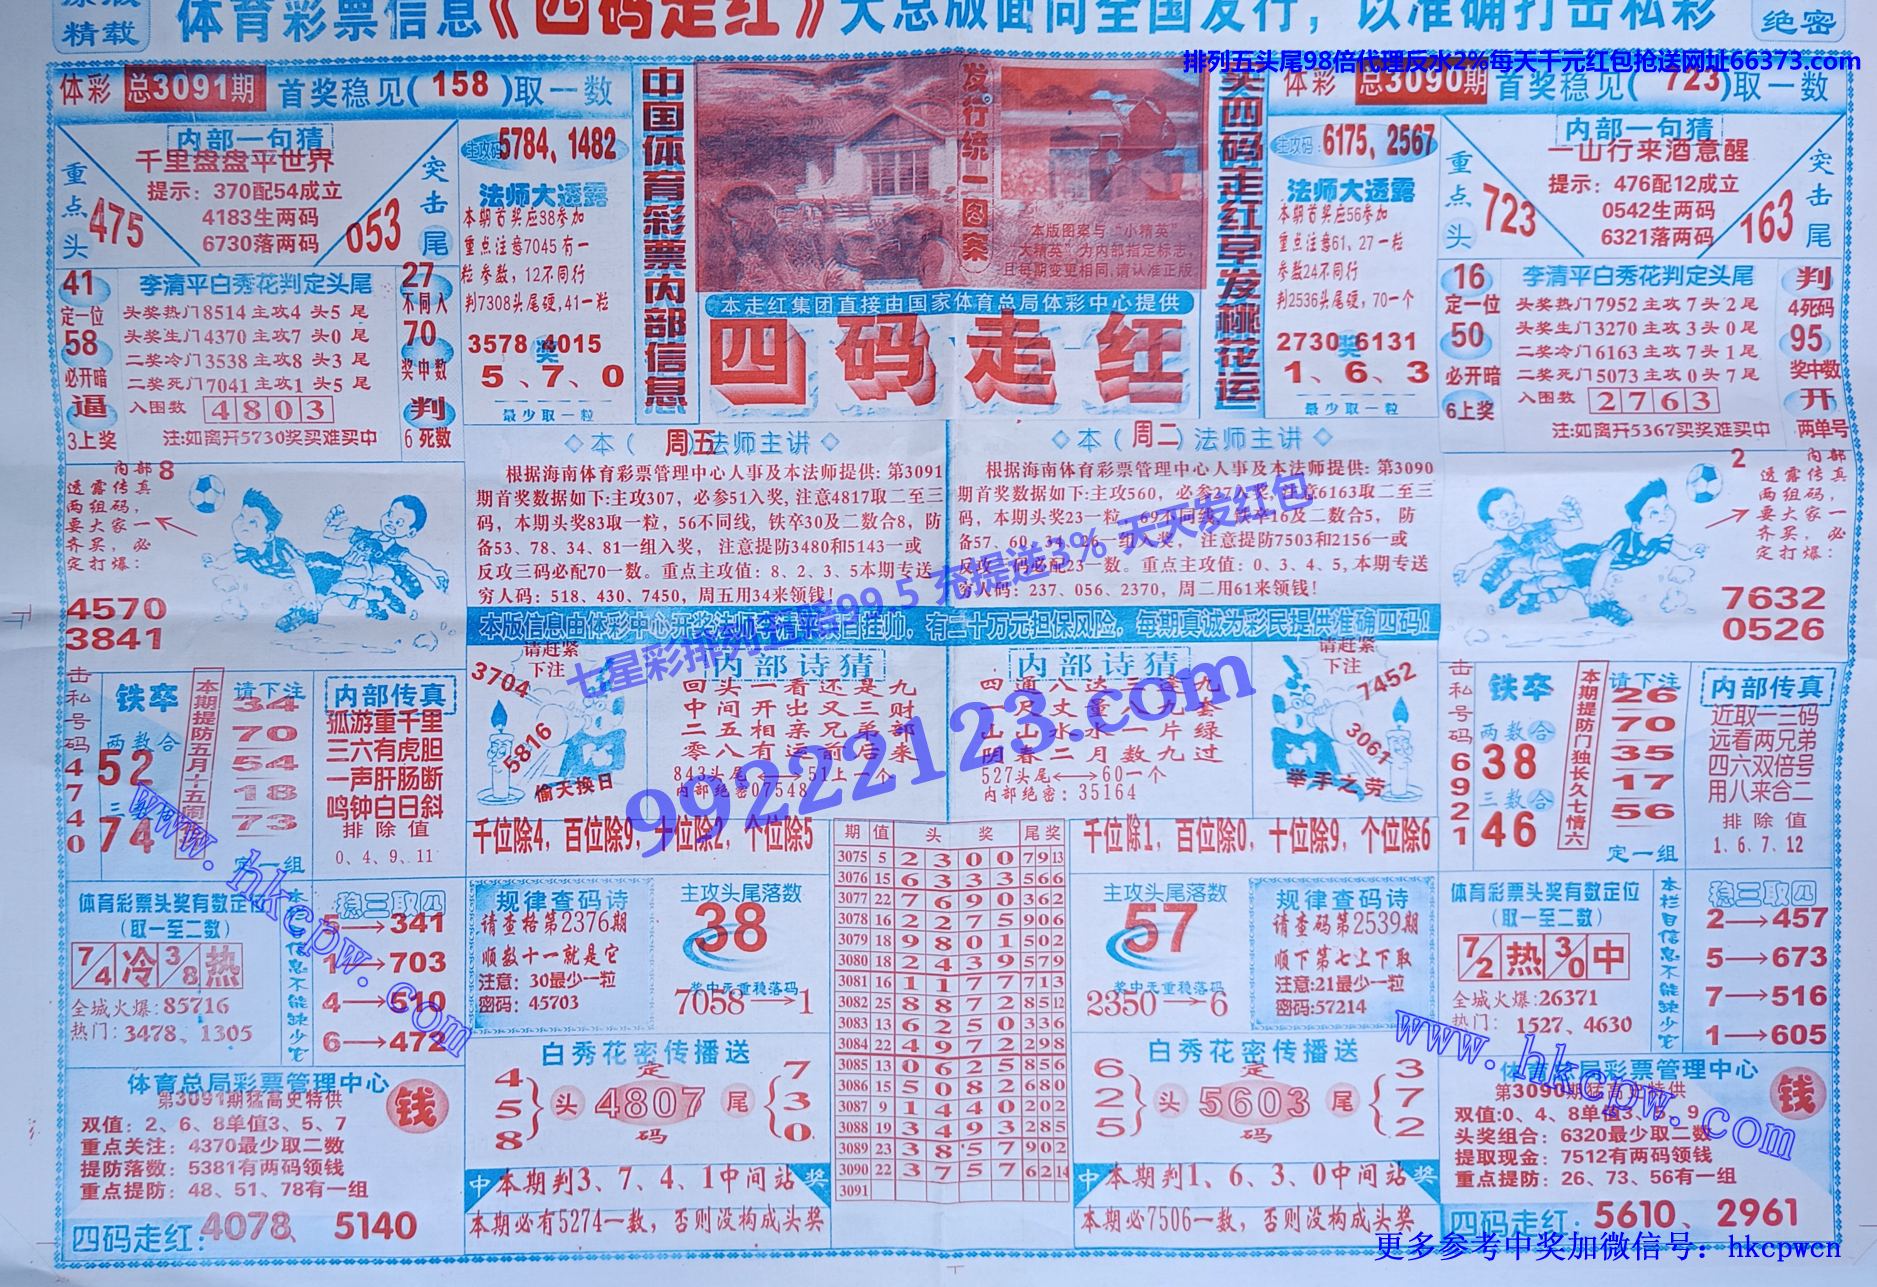 精载
体育彩票信息《四码走红》大总版面向全国发行，以准确打击私彩
绝密
排列五头尾98倍代理反水2%每天千元红包抢送网址66373.com
体彩 总3091期 首奖稳见(158)取一数
内部一句猜
千里盘盘平世界
提示：370配54成立
4183生两码
6730落两码
重点头 475
突击尾 053
主攻码：5784、1482
法师大透露
本期首奖应38参加
重点注意7045有一
粒参数，12不同行
判7308头尾硬，41一粒
3578 奖 4015
5、7、0
最少取一粒
41
定一位
58
必开暗
逼
3上奖
李清平白秀花判定头尾
头奖热门8514主攻4头5尾
头奖生门4370主攻7头0尾
二奖冷门3538主攻8头3尾
二奖死门7041主攻1头5尾
入围数 4803
注:如离开5730奖买难买中
27
不同入
70
奖中数
判
6死数
中国体育彩票内部信息
发行统一图案
本版图案与“小精英”
“大精英”为内部指定标志，
且每期变更相同，请认准正版
本走红集团直接由国家体育总局体彩中心提供
四码走红
买四码走红早发桃花运
体彩 总3090期 首奖稳见(723)取一数
主攻码：6175、2567
法师大透露
本期首奖应56参加
重点注意61、27一粒
参数24不同行
判2536头尾硬，70一个
2730 奖 6131
1、6、3
最少取一粒
内部一句猜
一山行来酒意醒
提示：476配12成立
0542生两码
6321落两码
重点头 723
突击尾 163
16
定一位
50
必开暗
6上奖
李清平白秀花判定头尾
头奖热门7952主攻7头2尾
头奖生门3270主攻3头0尾
二奖冷门6163主攻7头1尾
二奖死门5073主攻0头7尾
入围数 2763
注:如离开5367买奖难买中
判
4死码
95
奖中数
开
两单号
内部
透露传真
两组码，
要大家一
齐买，必
定打爆：
8
4570
3841
本（周五）法师主讲
根据海南体育彩票管理中心人事及本法师提供：第3091
期首奖数据如下:主攻307，必参51入奖，注意4817取二至三
码，本期头奖83取一粒，56不同线，铁卒30及二数合8，防
备53、78、34、81一组入奖， 注意提防3480和5143一或
反攻三码必配70一数。重点主攻值：8、2、3、5本期专送
穷人码：518、430、7450，周五用34来领钱！
本（周二）法师主讲
根据海南体育彩票管理中心人事及本法师提供：第3090
期首奖数据如下:主攻560，必参27入奖，注意6163取二至三
码，本期头奖23一粒，69不同线，铁卒16及二数合5， 防
备57、60、34、26一组入奖， 注意提防7503和2156一或
反攻三码必配23一数。重点主攻值：0、3、4、5，本期专送
穷人码：237、056、2370，周二用61来领钱！
内部
透露传真
两组码，
要大家一
齐买，必
定打爆：
2
7632
0526
本版信息由体彩中心开奖法师李清平亲自挂帅，有二十万元担保风险，每期真诚为彩民提供准确四码！
七星彩排列五赔99.5 充提送3% 天天发红包
99222123.com
击私号码 4740
铁卒
两数合
52
三数合
74
本期提防五月十五闹
请下注
34
70
54
18
73
定一组
内部传真
孤游重千里
三六有虎胆
一声肝肠断
鸣钟白日斜
排除值
0、4、9、11
请赶紧下注
3704
5816
偷天换日
内部诗猜
回头一看还是九
中间开出又三财
二五相亲兄弟部
零八有运前后来
843头尾⟷51上一个
内部绝密07548
内部诗猜
四通八达一套九
一尺丈量八九套
山山水水一片绿
阴春二月数九过
527头尾⟷60一个
内部绝密：35164
请赶紧下注
7452
3061
举手之劳
击私号码 6921
铁卒
两数合
38
三数合
46
本期提防门独长久七情六
请下注
26
70
35
17
56
定一组
内部传真
近取一三码
远看两兄弟
四六双倍号
用八来合二
排除值
1、6、7、12
千位除4，百位除9，十位除2，个位除5
千位除1，百位除0，十位除9，个位除6
期 值 头 奖 尾奖
3075 5 2 3 0 0 7 9 13
3076 15 6 3 3 3 5 6 6
3077 22 7 6 9 0 3 6 2
3078 16 2 2 7 5 9 0 6
3079 18 9 8 0 1 5 0 2
3080 18 2 4 3 9 5 7 9
3081 16 1 1 7 7 7 1 3
3082 25 8 8 7 2 8 5 12
3083 13 6 2 5 0 3 3 6
3084 22 4 9 7 2 2 9 8
3085 13 0 6 2 5 8 5 6
3086 15 5 0 8 2 6 8 0
3087 9 1 4 4 0 2 0 2
3088 19 3 4 9 3 2 8 5
3089 23 3 8 5 7 9 0 2
3090 22 3 7 5 7 6 2 14
3091
体育彩票头奖有数定位
（取一至二数）
7/4 冷 3/8 热
全城火爆：85716
热门：3478、1305
本栏自信息不能缺少它
稳三取四
5→341
1→703
4→610
6→472
规律查码诗
请查格第2376期
顺数十一就是它
注意：30最少一粒
密码：45703
主攻头尾落数
38
奖中无重稳落码
7058→1
主攻头尾落数
57
奖中无重稳落码
2350→6
规律查码诗
请查码第2539期
顺下第七上下取
注意:21最少一粒
密码:57214
体育彩票头奖有数定位
（取一至二数）
7/2 热 3/0 中
全城火爆:26371
热门： 1527、4630
本栏自信息不能缺少它
稳三取四
2→457
5→673
7→516
1→605
体育总局彩票管理中心
第3091期猛高史特供
钱
双值：2、6、8单值3、5、7
重点关注：4370最少取二数
提防落数：5381有两码领钱
重点提防：48、51、78有一组
四码走红：4078、5140
白秀花密传播送
4 5 8 头 定 4807 码 尾 7 3 0
中 本期判3、7、4、1中间站 奖
本期必有5274一数，否则没构成头奖
白秀花密传播送
6 2 5 头 定 5603 码 尾 3 7 2
中 本期判1、6、3、0中间站 奖
本期必7506一数，否则没构成头奖
体育总局彩票管理中心
第3090期猛高史特供
钱
双值:0、4、8单值3、5、9
头奖组合：6320最少取二数
提取现金：7512有两码领钱
重点提防：26、73、56有一组
四码走红：5610、2961
www.hkcpw.com
www.hkcpw.com
更多参考中奖加微信号：hkcpwcn